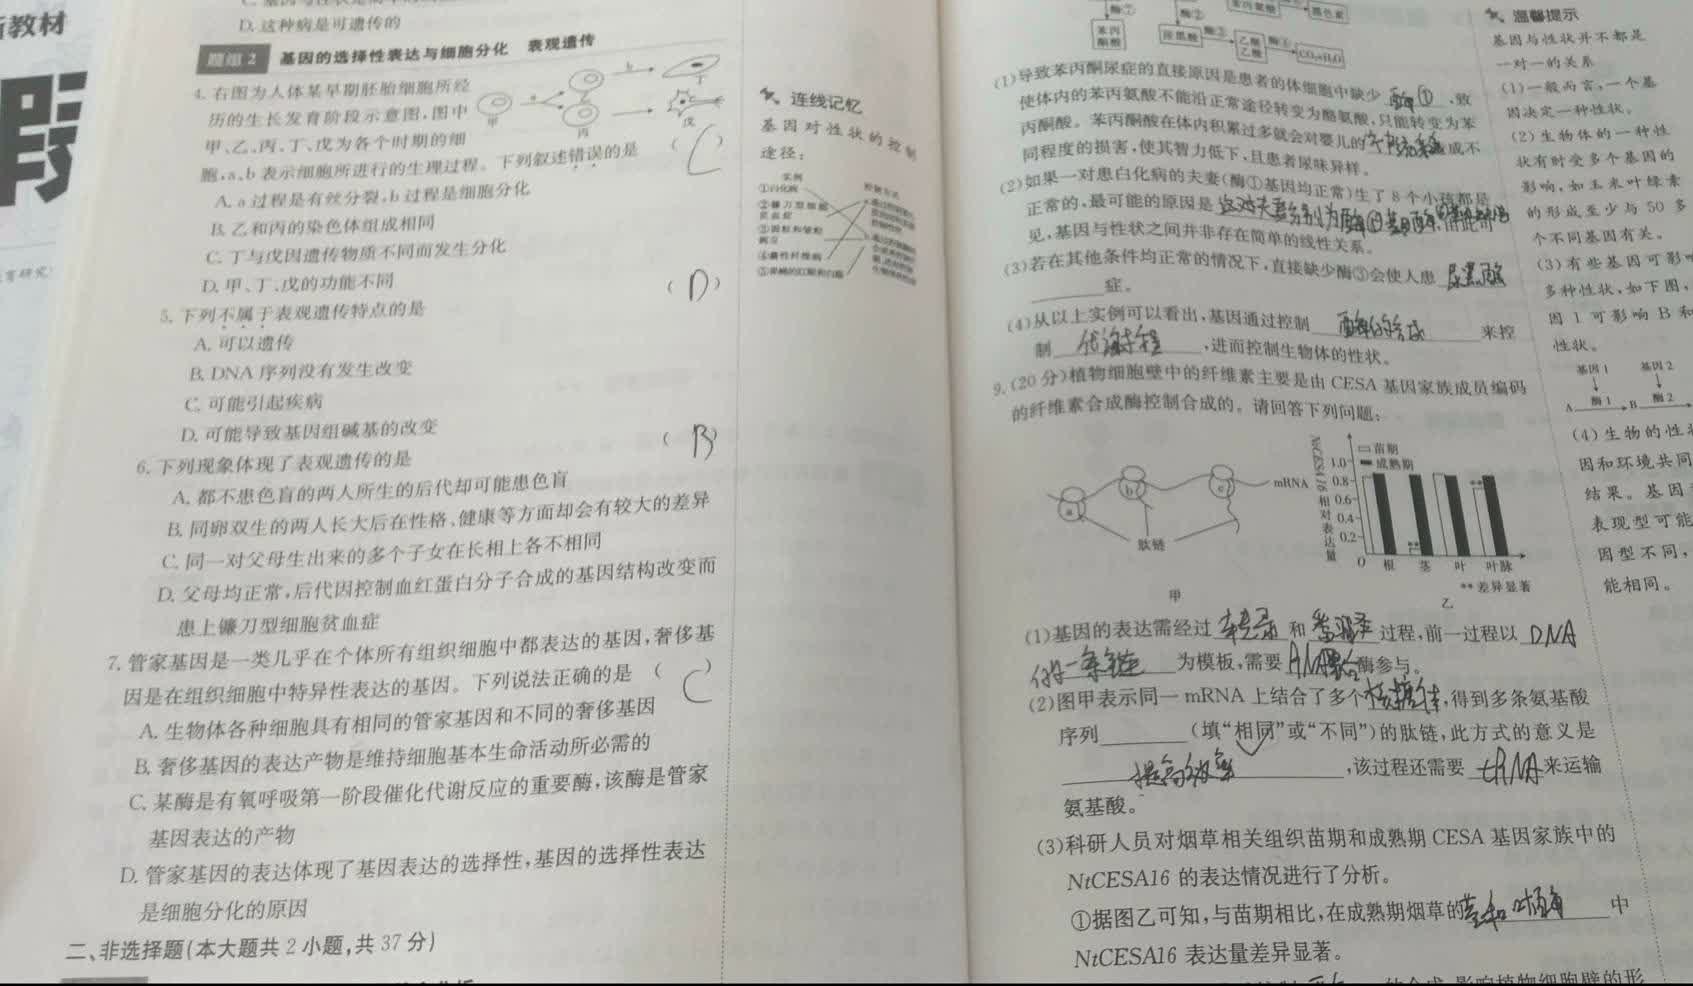 新教材
D. 这种病是可遗传的
题组2 基因的选择性表达与细胞分化 表观遗传
4. 右图为人体某早期胚胎细胞所经
历的生长发育阶段示意图,图中
甲、乙、丙、丁、戊为各个时期的细
胞,a、b表示细胞所进行的生理过程。下列叙述错误的是 ( C )
A. a过程是有丝分裂,b过程是细胞分化
B. 乙和丙的染色体组成相同
C. 丁与戊因遗传物质不同而发生分化
D. 甲、丁、戊的功能不同
5. 下列不属于表观遗传特点的是 ( D )
A. 可以遗传
B. DNA序列没有发生改变
C. 可能引起疾病
D. 可能导致基因组碱基的改变
6. 下列现象体现了表观遗传的是 ( B )
A. 都不患色盲的两人所生的后代却可能患色盲
B. 同卵双生的两人长大后在性格、健康等方面却会有较大的差异
C. 同一对父母生出来的多个子女在长相上各不相同
D. 父母均正常,后代因控制血红蛋白分子合成的基因结构改变而
患上镰刀型细胞贫血症
7. 管家基因是一类几乎在个体所有组织细胞中都表达的基因,奢侈基
因是在组织细胞中特异性表达的基因。下列说法正确的是 ( C )
A. 生物体各种细胞具有相同的管家基因和不同的奢侈基因
B. 奢侈基因的表达产物是维持细胞基本生命活动所必需的
C. 某酶是有氧呼吸第一阶段催化代谢反应的重要酶,该酶是管家
基因表达的产物
D. 管家基因的表达体现了基因表达的选择性,基因的选择性表达
是细胞分化的原因
二、非选择题(本大题共2小题,共37分)
连线记忆
基因对性状的控制
途径:
实例
①白化病
②镰刀型细胞
贫血症
③圆粒和皱粒
豌豆
④囊性纤维病
酶⑦
酶②
酶③
苯丙酮酸
尿黑酸
乙酰乙酸
CO₂+H₂O
黑色素
(1)导致苯丙酮尿症的直接原因是患者的体细胞中缺少 酶① ,致
使体内的苯丙氨酸不能沿正常途径转变为酪氨酸,只能转变为苯
丙酮酸。苯丙酮酸在体内积累过多就会对婴儿的 造成不
同程度的损害,使其智力低下,且患者尿味异样。
(2)如果一对患白化病的夫妻(酶①基因均正常)生了8个小孩都是
正常的,最可能的原因是 这对夫妻分别为 由此可
见,基因与性状之间并非存在简单的线性关系。
(3)若在其他条件均正常的情况下,直接缺少酶③会使人患 尿黑酸
症。
(4)从以上实例可以看出,基因通过控制 酶的合成 来控
制 代谢过程 ,进而控制生物体的性状。
9. (20分)植物细胞壁中的纤维素主要是由CESA基因家族成员编码
的纤维素合成酶控制合成的。请回答下列问题:
a
b
c
mRNA
肽链
甲
NtCESA16相对表达量
苗期
成熟期
1.0
0.8
0.6
0.4
0.2
0 根 茎 叶 叶脉
**差异显著
乙
(1)基因的表达需经过 转录 和 翻译 过程,前一过程以 DNA
的一条链 为模板,需要 RNA聚合 酶参与。
(2)图甲表示同一mRNA上结合了多个 核糖体 ,得到多条氨基酸
序列 (填“相同”或“不同”)的肽链,此方式的意义是
提高效率 ,该过程还需要 tRNA 来运输
氨基酸。
(3)科研人员对烟草相关组织苗期和成熟期CESA基因家族中的
NtCESA16的表达情况进行了分析。
①据图乙可知,与苗期相比,在成熟期烟草的 茎和叶脉 中
NtCESA16表达量差异显著。
温馨提示
基因与性状并不都是
一对一的关系
(1)一般而言,一个基
因决定一种性状。
(2)生物体的一种性
状有时受多个基因的
影响,如玉米叶绿素
的形成至少与50多
个不同基因有关。
(3)有些基因可影响
多种性状,如下图,
因1可影响B和
性状。
基因1 基因2
A 酶1 B 酶2
(4)生物的性
因和环境共同
结果。基因
表现型可能
因型不同,
能相同。